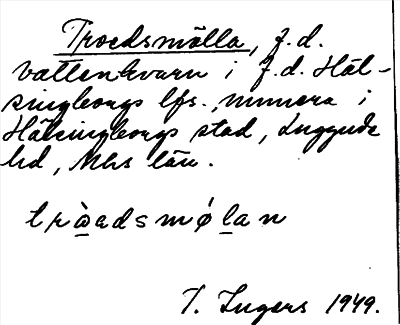 Troedsmölla, f.d.
vattenkvarn i f.d. Häl-
singborgs lfs., numera i
Hälsingborgs stad, Luggude
hd, Mhs län.
tròadsmølan
I. Ingers 1949.